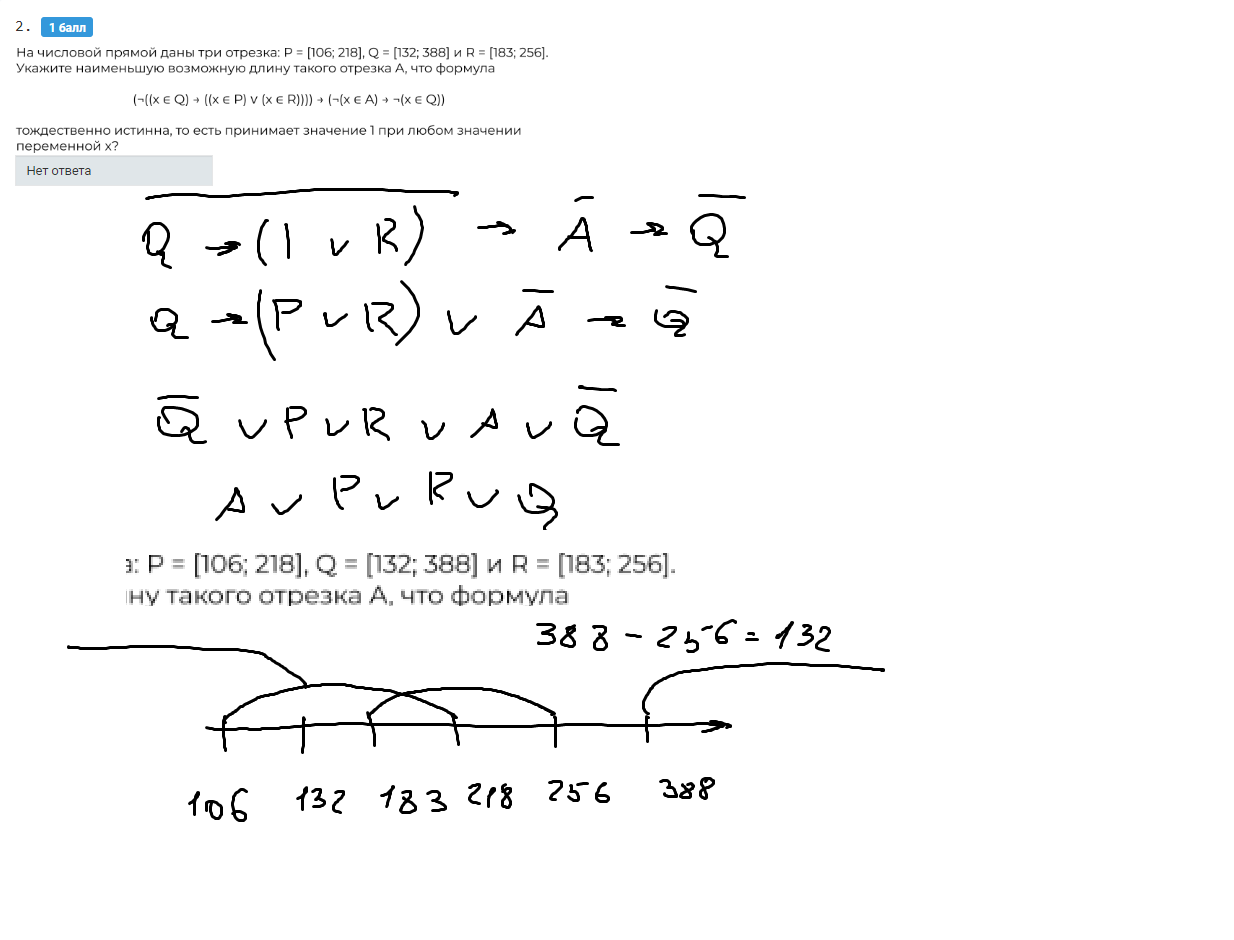 2. 1 балл
На числовой прямой даны три отрезка: P = [106; 218], Q = [132; 388] и R = [183; 256].
Укажите наименьшую возможную длину такого отрезка A, что формула
(¬((x ∈ Q) → ((x ∈ P) ∨ (x ∈ R)))) → (¬(x ∈ A) → ¬(x ∈ Q))
тождественно истинна, то есть принимает значение 1 при любом значении
переменной x?
Нет ответа
Q → (1 ∨ R) → Ā → Q̄
Q → (P ∨ R) ∨ Ā → Q̄
Q̄ ∨ P ∨ R ∨ A ∨ Q̄
A ∨ P ∨ R ∨ Q
а: P = [106; 218], Q = [132; 388] и R = [183; 256].
ну такого отрезка A, что формула
388 - 256 = 132
106 132 183 218 256 388